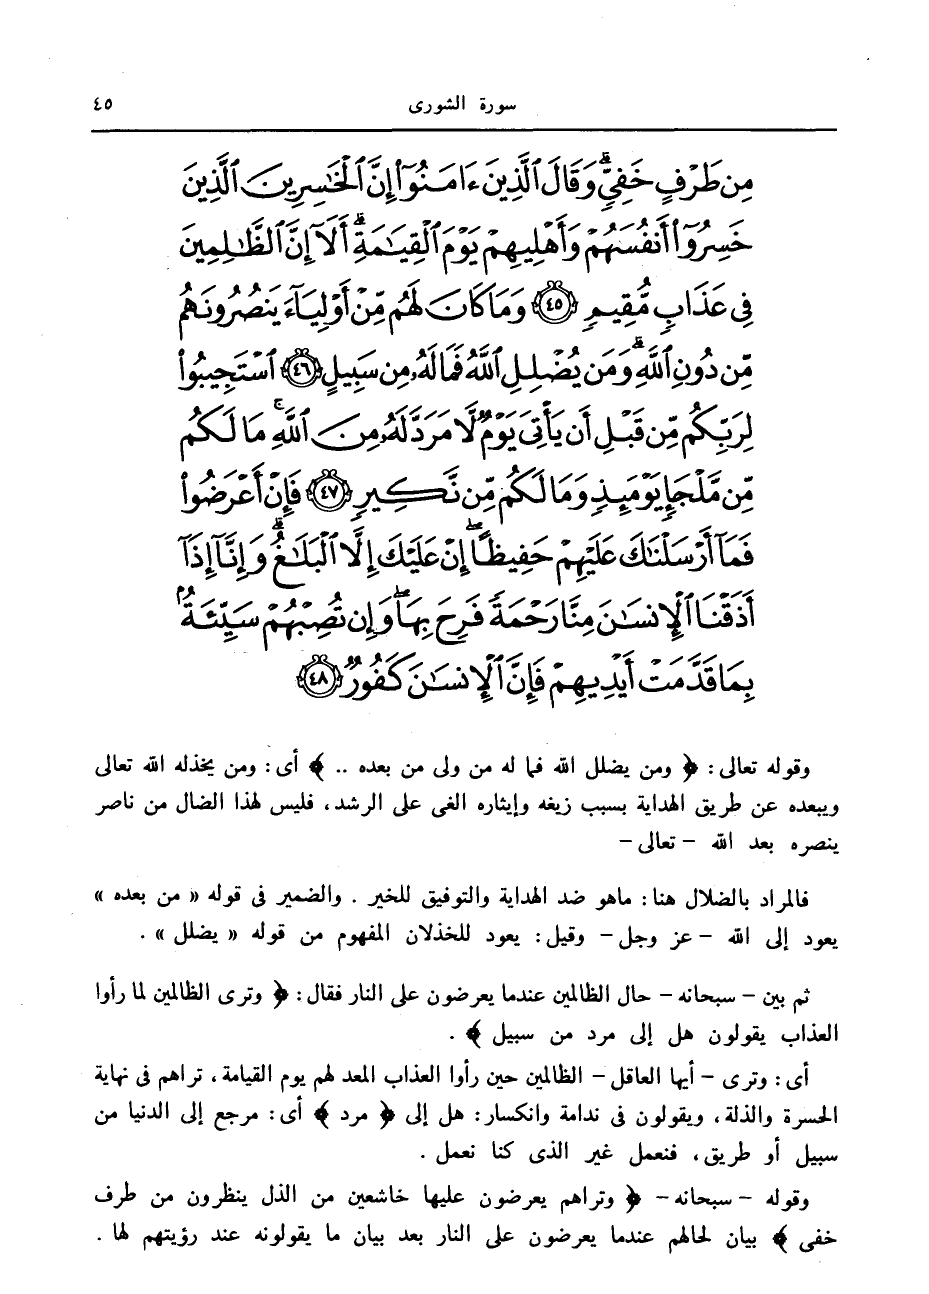 سورة الشورى ٤٥
مِن طَرْفٍ خَفِيٍّ ۗ وَقَالَ ٱلَّذِينَ ءَامَنُوٓا۟ إِنَّ ٱلْخَٰسِرِينَ ٱلَّذِينَ
خَسِرُوٓا۟ أَنفُسَهُمْ وَأَهْلِيهِمْ يَوْمَ ٱلْقِيَٰمَةِ ۗ أَلَآ إِنَّ ٱلظَّٰلِمِينَ
فِى عَذَابٍ مُّقِيمٍ ﴿٤٥﴾ وَمَا كَانَ لَهُم مِّنْ أَوْلِيَآءَ يَنصُرُونَهُم
مِّن دُونِ ٱللَّهِ ۗ وَمَن يُضْلِلِ ٱللَّهُ فَمَا لَهُۥ مِن سَبِيلٍ ﴿٤٦﴾ ٱسْتَجِيبُوا۟
لِرَبِّكُم مِّن قَبْلِ أَن يَأْتِىَ يَوْمٌ لَّا مَرَدَّ لَهُۥ مِنَ ٱللَّهِ ۚ مَا لَكُم
مِّن مَّلْجَإٍ يَوْمَئِذٍ وَمَا لَكُم مِّن نَّكِيرٍ ﴿٤٧﴾ فَإِنْ أَعْرَضُوا۟
فَمَآ أَرْسَلْنَٰكَ عَلَيْهِمْ حَفِيظًا ۖ إِنْ عَلَيْكَ إِلَّا ٱلْبَلَٰغُ ۗ وَإِنَّآ إِذَآ
أَذَقْنَا ٱلْإِنسَٰنَ مِنَّا رَحْمَةً فَرِحَ بِهَا ۖ وَإِن تُصِبْهُمْ سَيِّئَةٌۢ
بِمَا قَدَّمَتْ أَيْدِيهِمْ فَإِنَّ ٱلْإِنسَٰنَ كَفُورٌ ﴿٤٨﴾
وقوله تعالى : ﴿ ومن يضلل الله فما له من ولى من بعده .. ﴾ أى : ومن يخذله الله تعالى
ويبعده عن طريق الهداية بسبب زيغه وإيثاره الغى على الرشد ، فليس لهذا الضال من ناصر
ينصره بعد الله – تعالى –
فالمراد بالضلال هنا : ماهو ضد الهداية والتوفيق للخير . والضمير فى قوله « من بعده »
يعود إلى الله – عز وجل – وقيل : يعود للخذلان المفهوم من قوله « يضلل » .
ثم بين – سبحانه – حال الظالمين عندما يعرضون على النار فقال : ﴿ وترى الظالمين لما رأوا
العذاب يقولون هل إلى مرد من سبيل ﴾ .
أى : وترى – أيها العاقل – الظالمين حين رأوا العذاب المعد لهم يوم القيامة ، تراهم فى نهاية
الحسرة والذلة ، ويقولون فى ندامة وانكسار : هل إلى ﴿ مرد ﴾ أى : مرجع إلى الدنيا من
سبيل أو طريق ، فنعمل غير الذى كنا نعمل .
وقوله – سبحانه – ﴿ وتراهم يعرضون عليها خاشعين من الذل ينظرون من طرف
خفى ﴾ بيان لحالهم عندما يعرضون على النار بعد بيان ما يقولونه عند رؤيتهم لها .